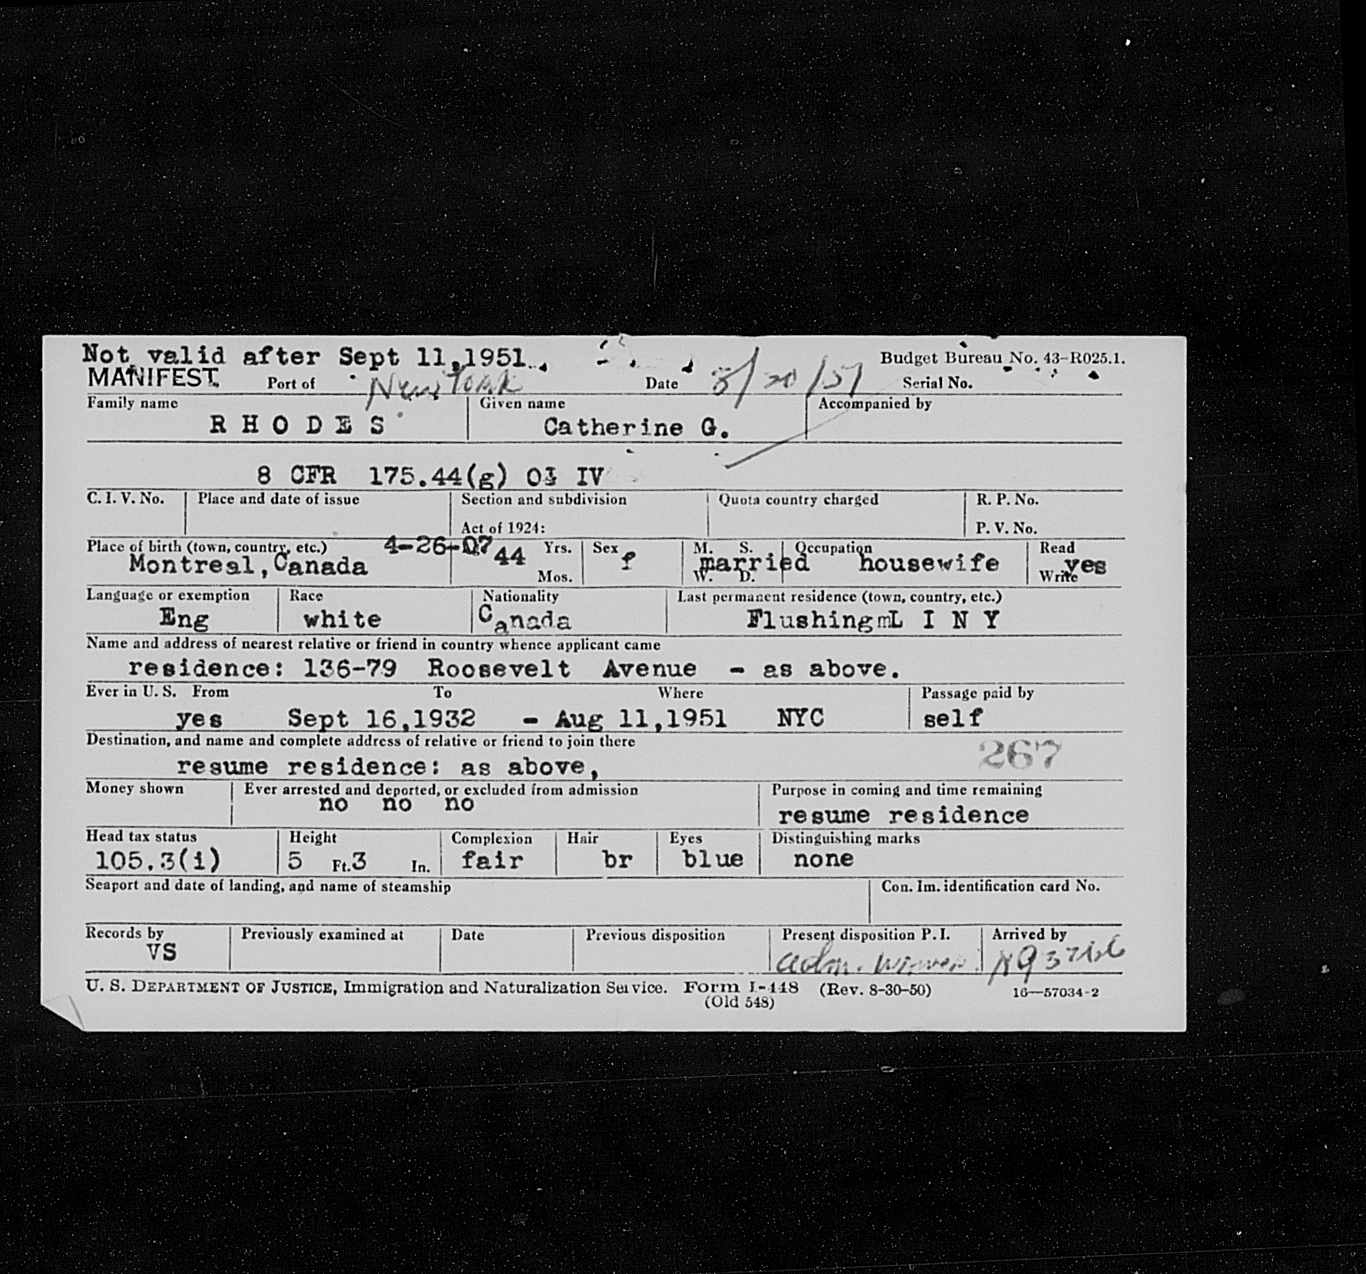 Not valid after Sept 11,1951.
MANIFEST. Port of New York Date 8/20/51 Serial No.
Budget Bureau No. 43-R025.1.
Family name Given name Accompanied by
R H O D E S Catherine G.
8 CFR 175.44(g) IV
C. I. V. No. Place and date of issue Section and subdivision Quota country charged R. P. No.
Act of 1924: P. V. No.
Place of birth (town, country, etc.) 4-26-07 44 Yrs. Sex M. S. Occupation Read
Montreal, Canada f married housewife yes
Mos. W. D. Write
Language or exemption Race Nationality Last permanent residence (town, country, etc.)
Eng white Canada FlushingmL I N Y
Name and address of nearest relative or friend in country whence applicant came
residence: 136-79 Roosevelt Avenue - as above.
Ever in U. S. From To Where Passage paid by
yes Sept 16,1932 - Aug 11,1951 NYC self
Destination, and name and complete address of relative or friend to join there
267
resume residence: as above,
Money shown Ever arrested and deported, or excluded from admission Purpose in coming and time remaining
no no no resume residence
Head tax status Height Complexion Hair Eyes Distinguishing marks
105.3(i) 5 Ft. 3 In. fair br blue none
Seaport and date of landing, and name of steamship Con. Im. identification card No.
Records by Previously examined at Date Previous disposition Present disposition P. I. Arrived by
VS adm.
U. S. DEPARTMENT OF JUSTICE, Immigration and Naturalization Service. Form I-448 (Rev. 8-30-50) 16—57034-2
(Old 548)